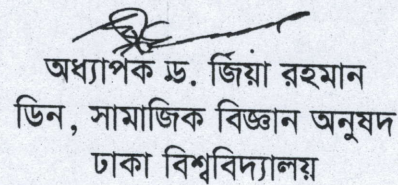 অধ্যাপক ড. জিয়া রহমান
ডিন, সামাজিক বিজ্ঞান অনুষদ
ঢাকা বিশ্ববিদ্যালয়